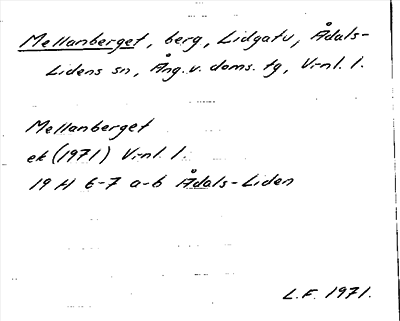 Mellanberget, berg, Lidgatu, Ådals-
Lidens sn, Ång. v. doms. tg, V-nl. l.
Mellanberget
ek (1971) V-nl. l.
19 H 6-7 a-b Ådals-Liden
L.F. 1971.